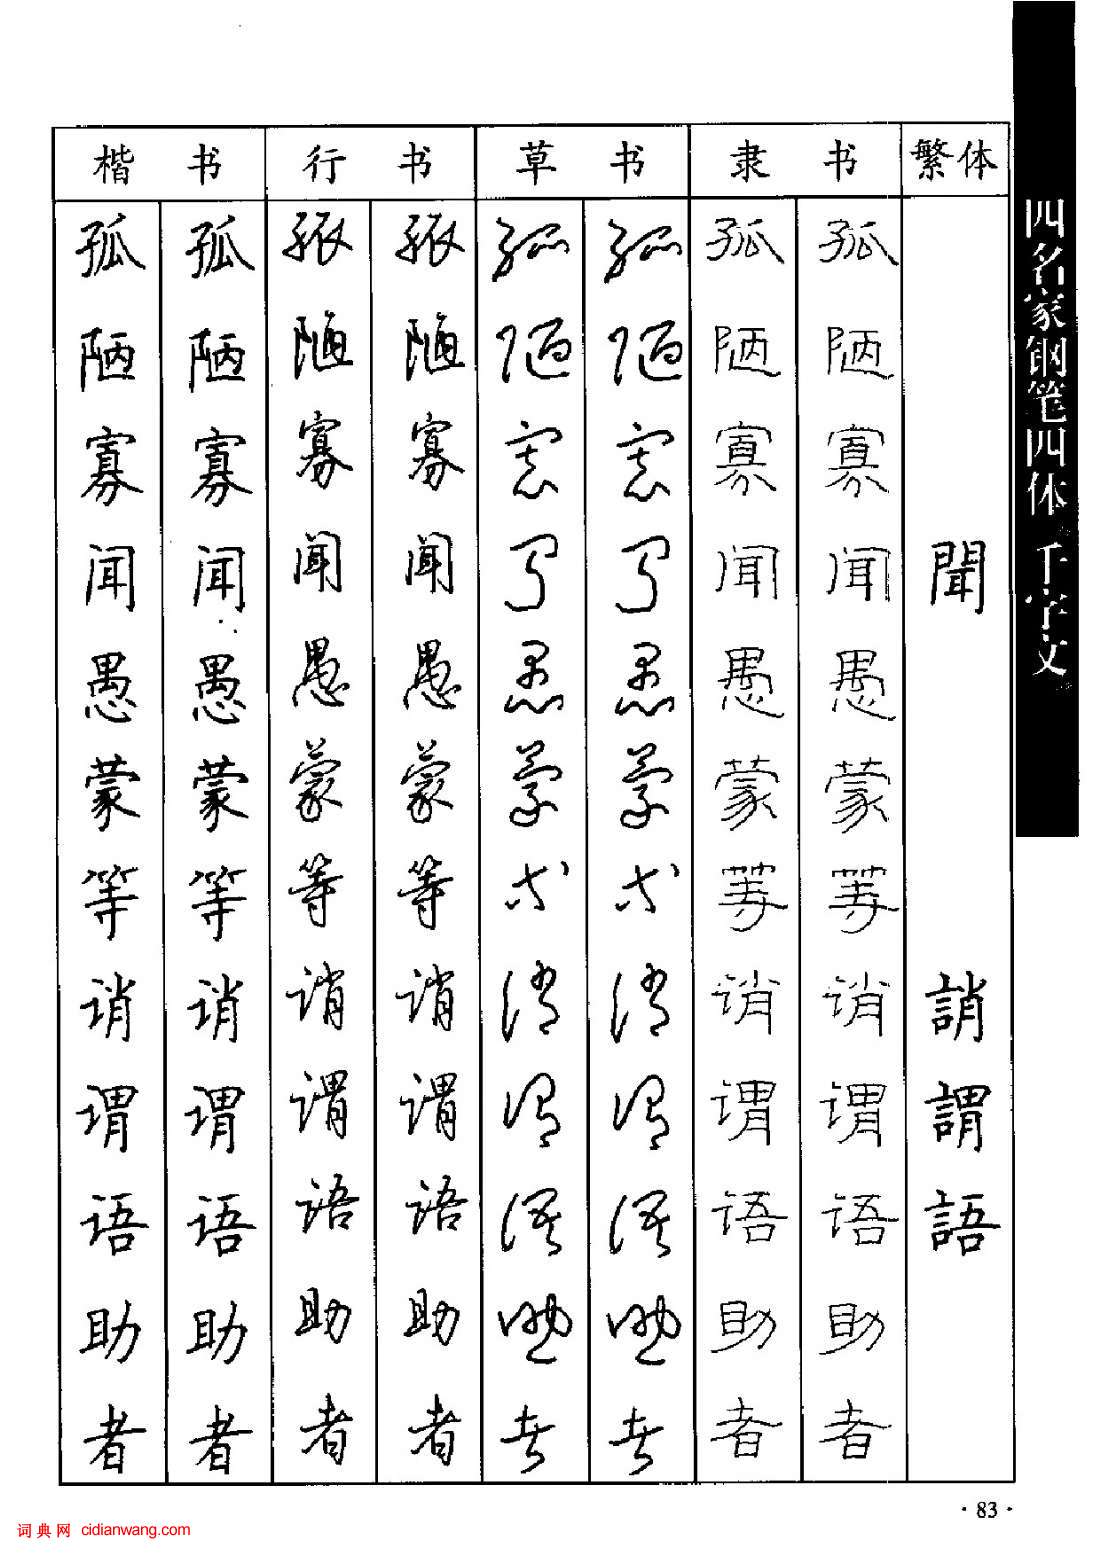 四名家钢笔四体千字文
楷书 行书 草书 隶书 繁体
孤 孤 孤 孤 孤 孤 孤 孤
陋 陋 陋 陋 陋 陋 陋 陋
寡 寡 寡 寡 寡 寡 寡 寡
闻 闻 闻 闻 闻 闻 闻 闻 聞
愚 愚 愚 愚 愚 愚 愚 愚
蒙 蒙 蒙 蒙 蒙 蒙 蒙 蒙
等 等 等 等 等 等 等 等
诮 诮 诮 诮 诮 诮 诮 诮 誚
谓 谓 谓 谓 谓 谓 谓 谓 謂
语 语 语 语 语 语 语 语 語
助 助 助 助 助 助 助 助
者 者 者 者 者 者 者 者
·83·
词典网 cidianwang.com